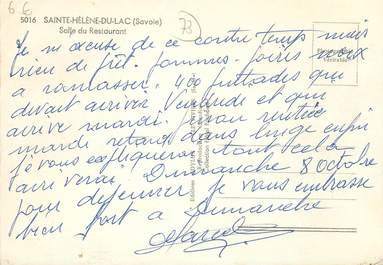 66
73
5016 SAINTE-HÉLÈNE-DU-LAC (Savoie)
Salle du Restaurant
Je m'excuse de ce contre temps mais
rien de prêt. pommes. poires noix
a ramasser. 400 que
devait arriver Vendredi et qui
arrive mardi. rentrée
mardi retard dans linge enfin
je vous expliquerai tout cela
arriverai Dimanche 8 Octobre
pour dejeuner je vous embrasse
bien fort a Dimanche
Marcel